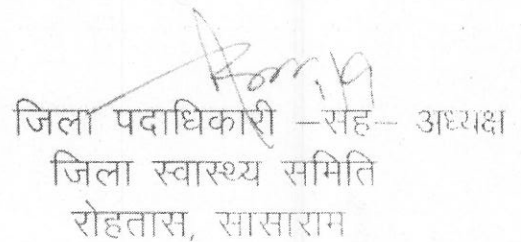 जिला पदाधिकारी –सह– अध्यक्ष
जिला स्वास्थ्य समिति
रोहतास, सासाराम